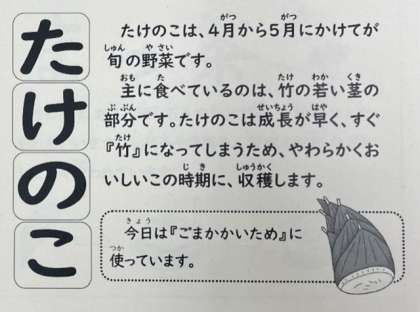 たけのこ
たけのこは、4月から5月にかけてが
旬の野菜です。
主に食べているのは、竹の若い茎の
部分です。たけのこは成長が早く、すぐ
『竹』になってしまうため、やわらかくお
いしいこの時期に、収穫します。
今日は『ごまかかいため』に
使っています。